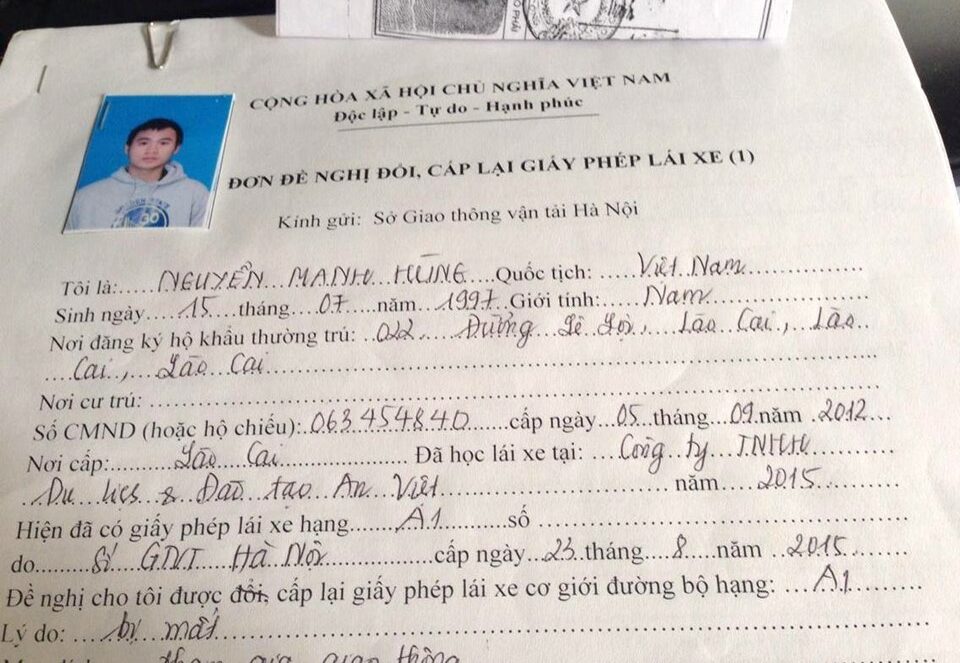 CỘNG HÒA XÃ HỘI CHỦ NGHĨA VIỆT NAM
Độc lập - Tự do - Hạnh phúc
ĐƠN ĐỀ NGHỊ ĐỔI, CẤP LẠI GIẤY PHÉP LÁI XE (1)
Kính gửi: Sở Giao thông vận tải Hà Nội
Tôi là: NGUYỄN MẠNH HÙNG Quốc tịch: Việt Nam
Sinh ngày 15 tháng 07 năm 1997 Giới tính: Nam
Nơi đăng ký hộ khẩu thường trú: 022, Đường Lê Lợi, Lào Cai, Lào
Cai, Lào Cai
Nơi cư trú:
Số CMND (hoặc hộ chiếu): 063454840 cấp ngày 05 tháng 09 năm 2012
Nơi cấp: Lào Cai Đã học lái xe tại: Công ty TNHH
Du lịch & Đào tạo An Việt năm 2015
Hiện đã có giấy phép lái xe hạng A1 số
do Sở GTVT Hà Nội cấp ngày 23 tháng 8 năm 2015
Đề nghị cho tôi được đổi, cấp lại giấy phép lái xe cơ giới đường bộ hạng: A1
Lý do: bị mất
tham gia giao thông